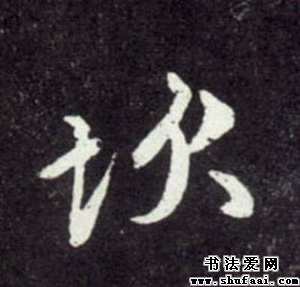 坎
书法爱网
www.shufaai.com